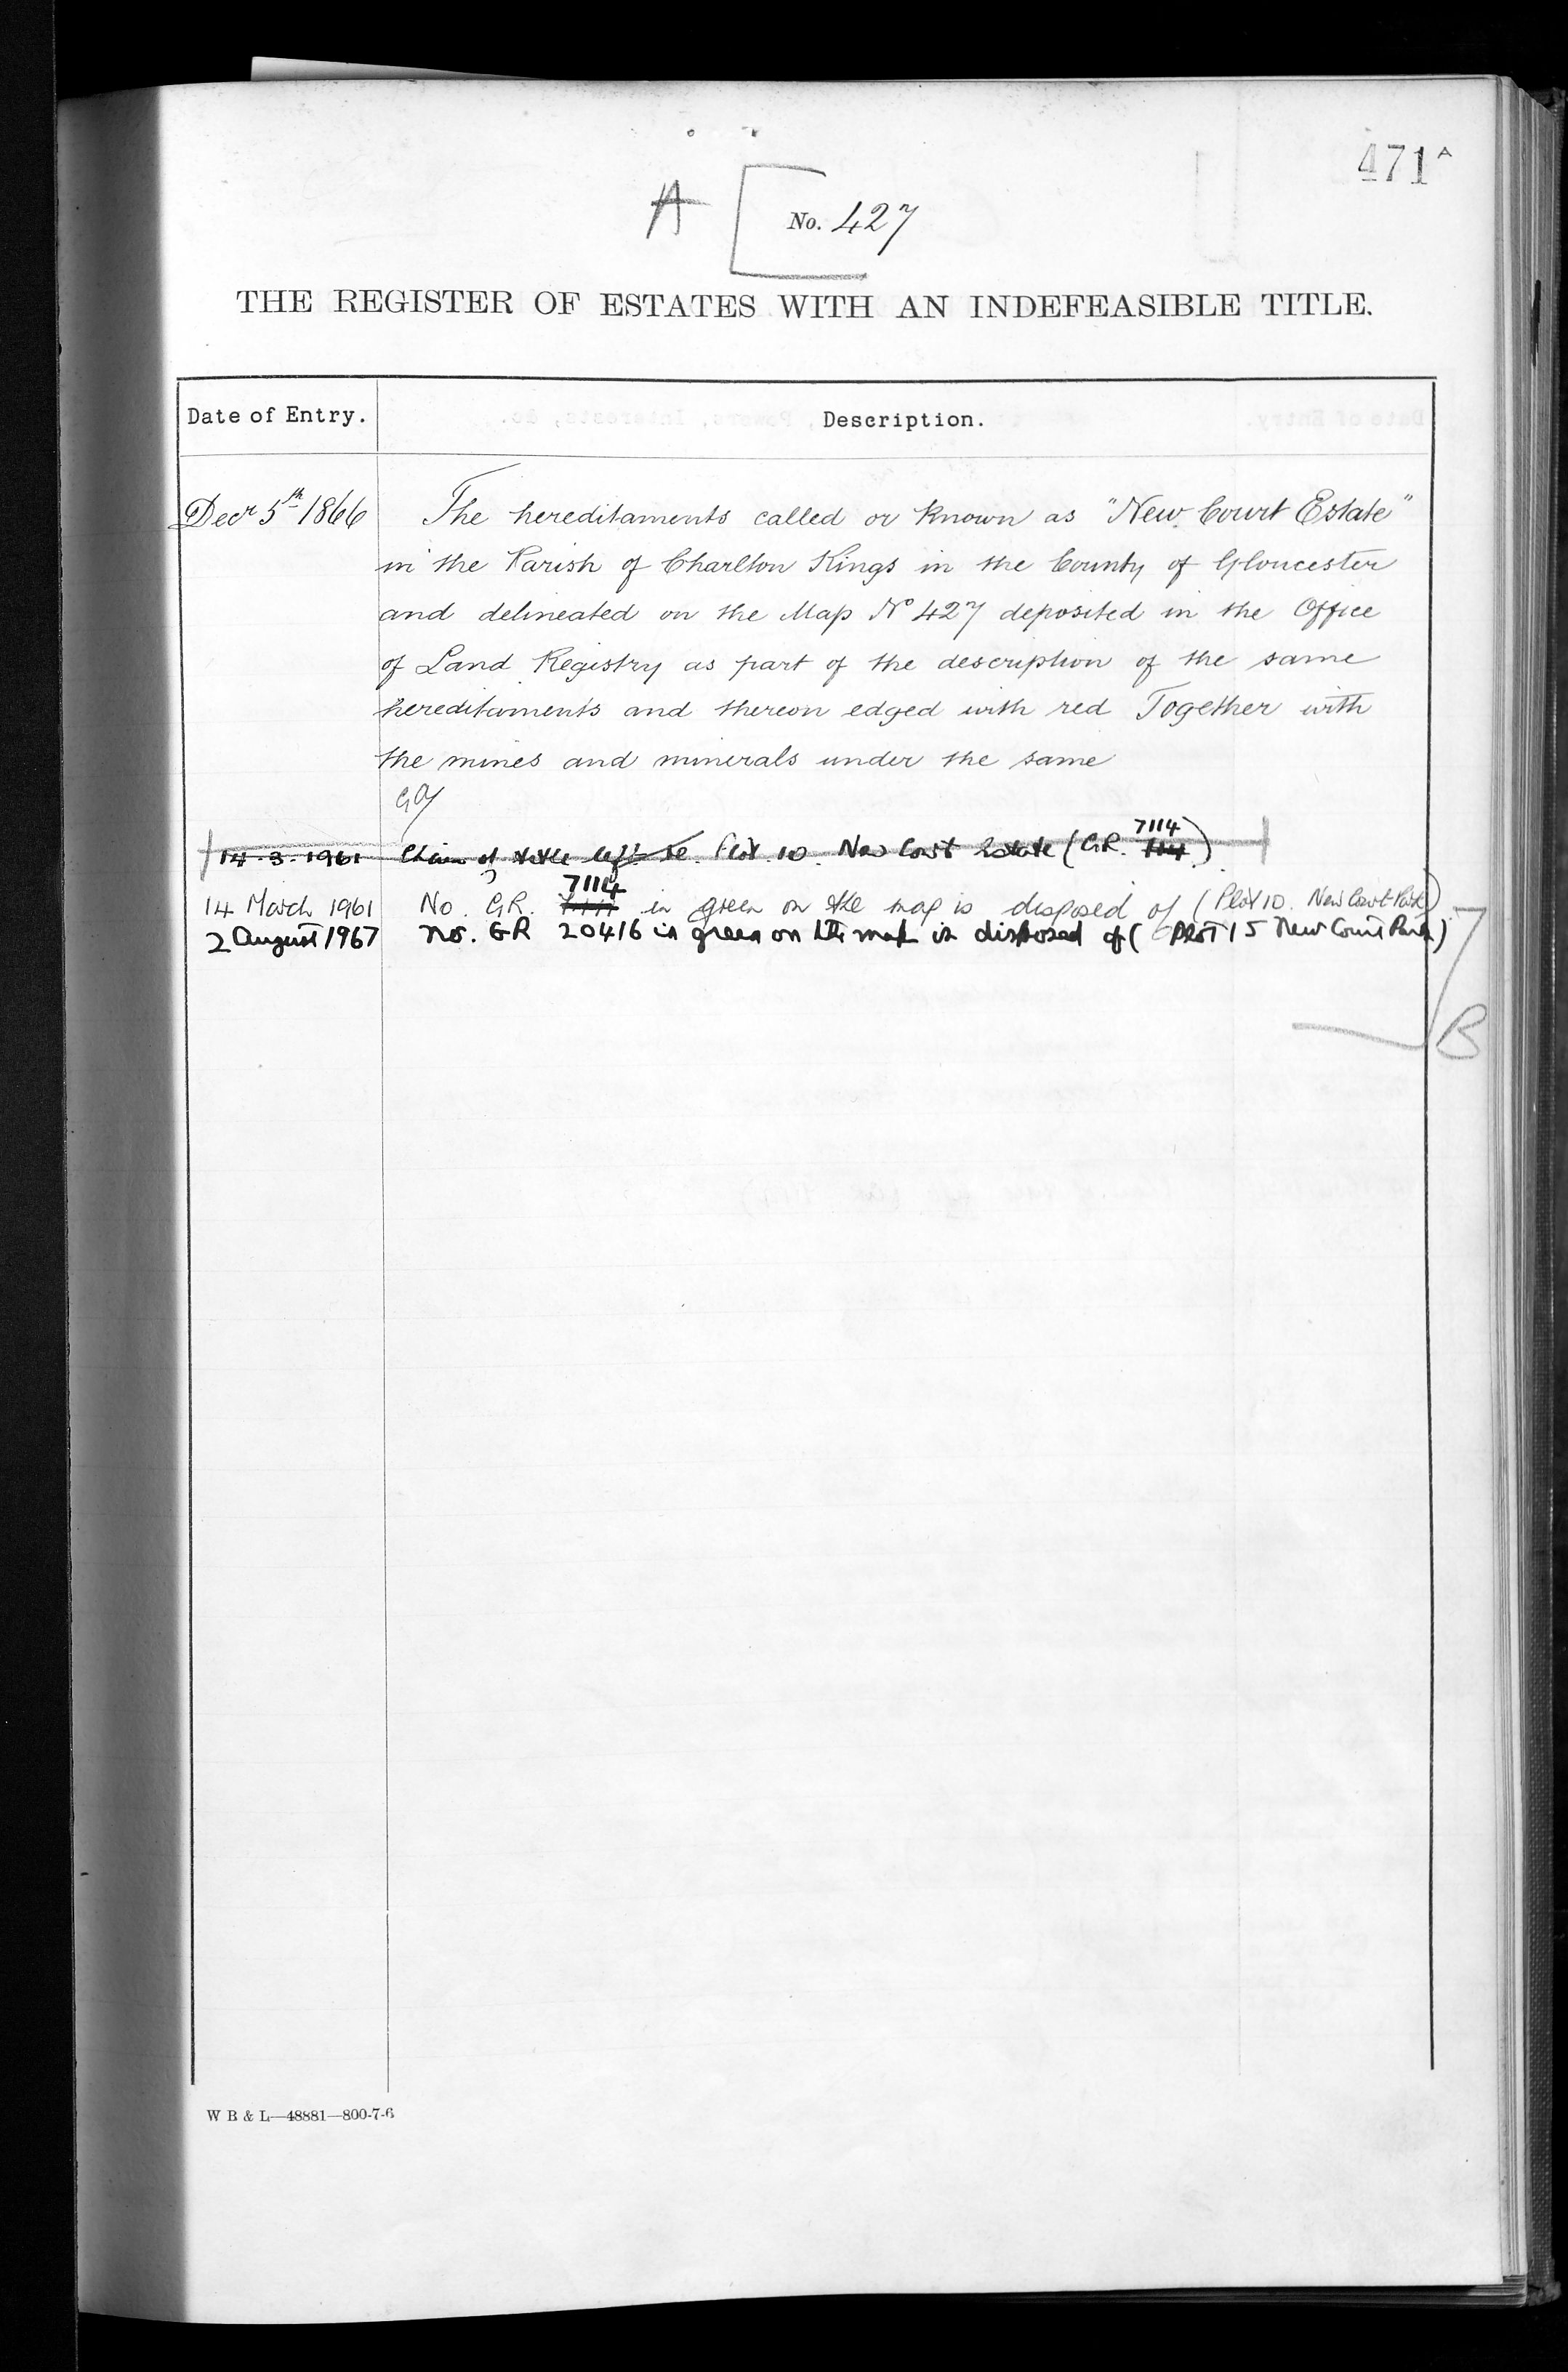 471 A
A
No. 427
THE REGISTER OF ESTATES WITH AN INDEFEASIBLE TITLE.
Date of Entry. Description.
Decr 5th 1866 The hereditaments called or known as "New Court Estate"
in the Parish of Charlton Kings in the County of Gloucester
and delineated on the Map No 427 deposited in the Office
of Land Registry as part of the description of the same
hereditaments and thereon edged with red Together with
the mines and minerals under the same
7114
14.3.1961 Claim of title left re. Plot 10. New Court Estate (GR. )
7114
14 March 1961 No. GR. in green on the map is disposed of (Plot 10. New Court Park)
2 August 1967 No. GR 20416 in green on the map is disposed of (PLOT 15 New Court Park)
B
W B & L—48881—800-7-6